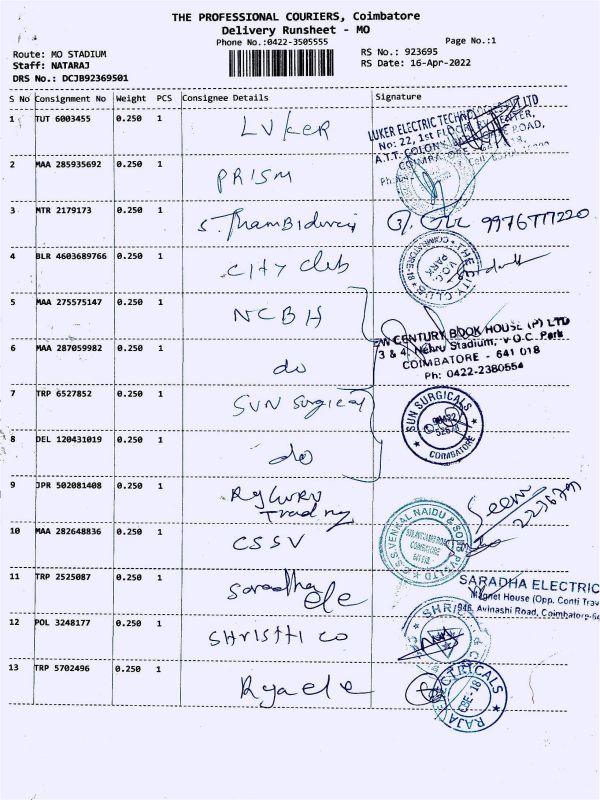 THE PROFESSIONAL COURIERS, Coimbatore
Delivery Runsheet - MO
Phone No.:0422-3505555 Page No.:1
Route: MO STADIUM RS No.: 923695
Staff: NATARAJ RS Date: 16-Apr-2022
DRS No.: DCJB92369501
S No Consignment No Weight PCS Consignee Details Signature
1 TUT 6003455 0.250 1 LUKER
LUKER ELECTRIC LTD
No: 22, 1st FLOOR,
A.T.T. COLONY ROAD,
2 MAA 285935692 0.250 1 PRISM
3 MTR 2179173 0.250 1 S. Thambidurai 9976777220
4 BLR 4603689766 0.250 1 City Club
THE CITY CLUB
V.O.C. PARK
COIMBATORE-18
5 MAA 275575147 0.250 1 NCBH
CENTURY BOOK HOUSE (P) LTD
3 & 4, Nehru Stadium, V.O.C. Park
COIMBATORE - 641 018
Ph: 0422-2380554
6 MAA 287059982 0.250 1 do
7 TRP 6527852 0.250 1 SUN Surgical
SUN SURGICALS
COIMBATORE
8 DEL 120431019 0.250 1 do
9 JPR 502081408 0.250 1
Trading
10 MAA 282648836 0.250 1 CSSV
S.S. VENKAL NAIDU & SONS PVT LTD
COIMBATORE
11 TRP 2525087 0.250 1 Saradha ele
SARADHA ELECTRIC
Magnet House (Opp. Conti Trav
946, Avinashi Road, Coimbatore-64
12 POL 3248177 0.250 1 SHRISTHI CO
SHRI
13 TRP 5702496 0.250 1
RAJA ELECTRICALS
CBE-18